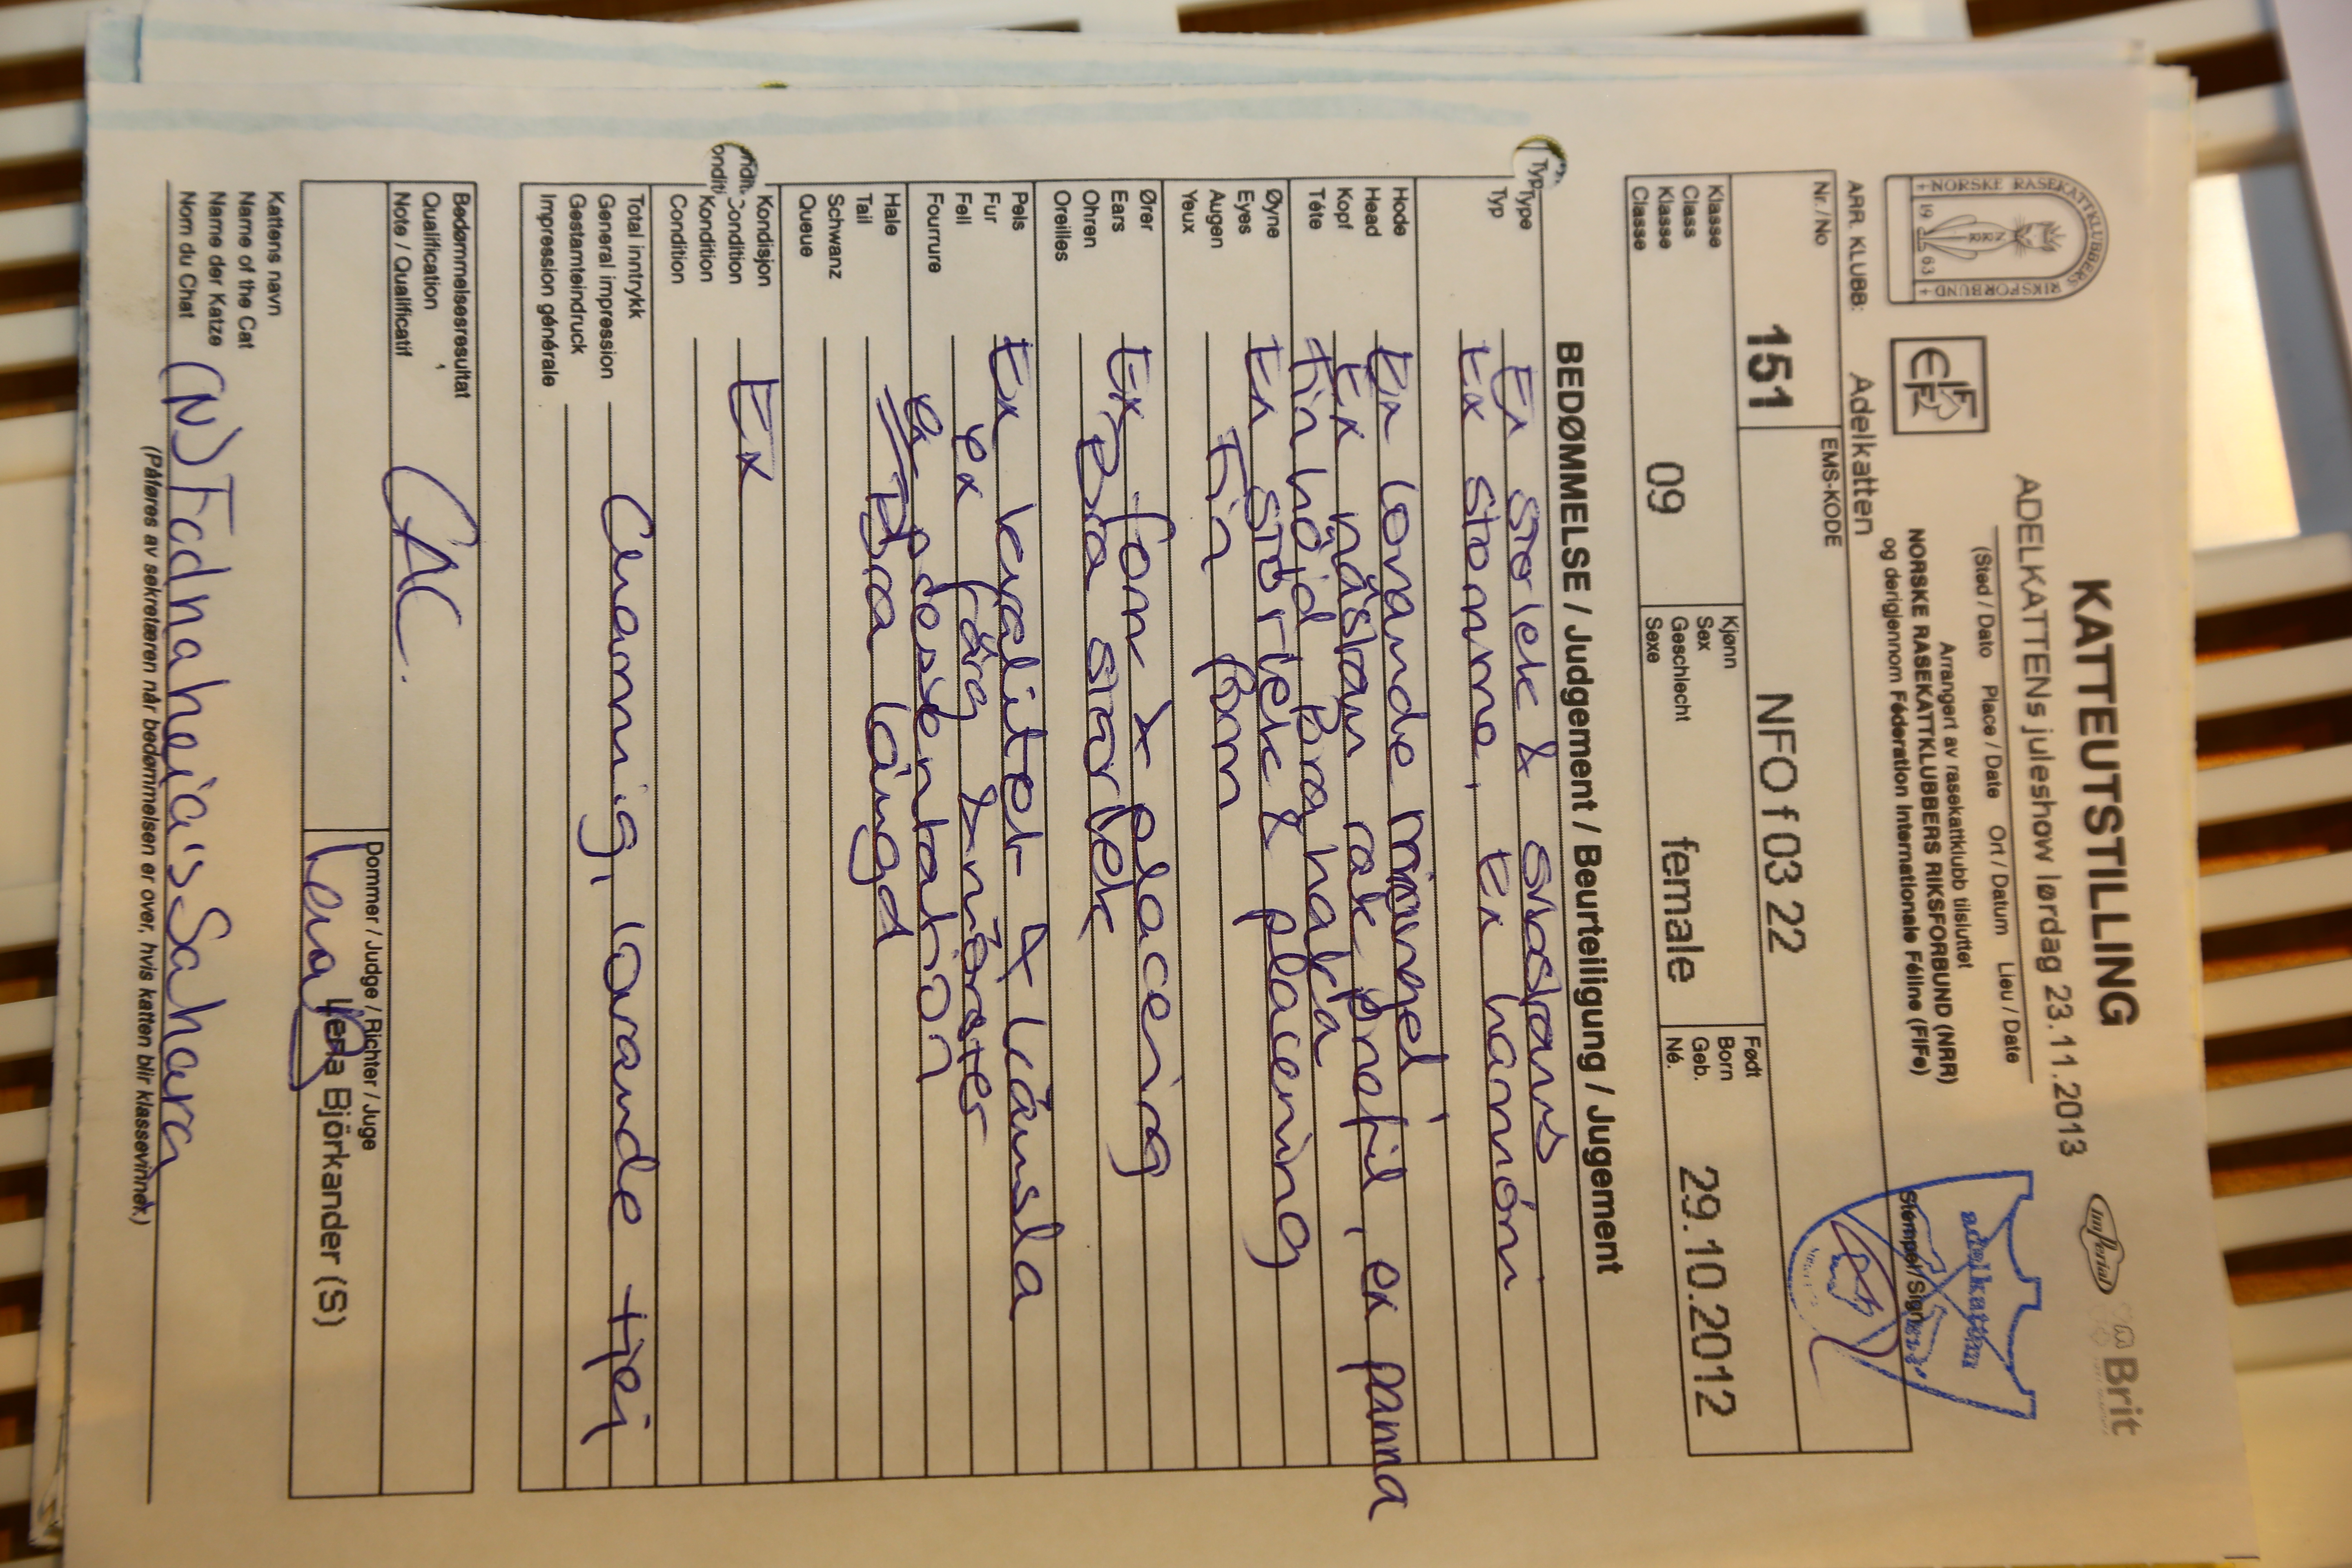 KATTEUTSTILLING
ADELKATTENS juleshow lørdag 23.11.2013
Imperial
Brit
(Sted / Dato Place / Date Ort / Datum Lieu / Date
Arrangert av rasekattklubb tilsluttet
NORSKE RASEKATTKLUBBERS RIKSFORBUND (NRR)
og derigjennom Féderation Internationale Féline (FIFe)
+NORSKE RASEKATTKLUBBERS RIKSFORBUND+
19 63
NRR
FIFe
ARR. KLUBB: Adelkatten
Stempel/Sign
adelkatten
Nr./No 151
EMS-KODE NFO f 03 22
Klasse
Class
Klasse
Classe
09
Kjønn
Sex
Geschlecht
Sexe
female
Født
Born
Geb.
Né.
29.10.2012
BEDØMMELSE / Judgement / Beurteiligung / Jugement
Type
Typ
Ex storlek & substans
Ex stomme, Ex harmóni
Hode
Head
Kopf
Tête
Ex lovande triangel
Ex nästan rak profil, ex panna
Fin höjd Bra haka
Øyne
Eyes
Augen
Yeux
Ex storlek & placering
Fin form
Ører
Ears
Ohren
Oreilles
Ex form & placering
Bra storlek
Pels
Fur
Fell
Fourrure
Ex kvalitet & känsla
ex färg & mönster
ex presentation
Hale
Tail
Schwanz
Queue
Bra längd
Kondisjon
Condition
Kondition
Condition
Ex
Total inntrykk
General impression
Gestamteindruck
Impression générale
Charmig, lovande tjej
Bedømmelsesresultat
Qualification
Note / Qualificatif
CAC.
Dommer / Judge / Richter / Juge
Lena Björkander (S)
Kattens navn
Name of the Cat
Name der Katze
Nom du Chat
(N) Fadnaheia's Sahara
(Påføres av sekretæren når bedømmelsen er over, hvis katten blir klassevinner.)